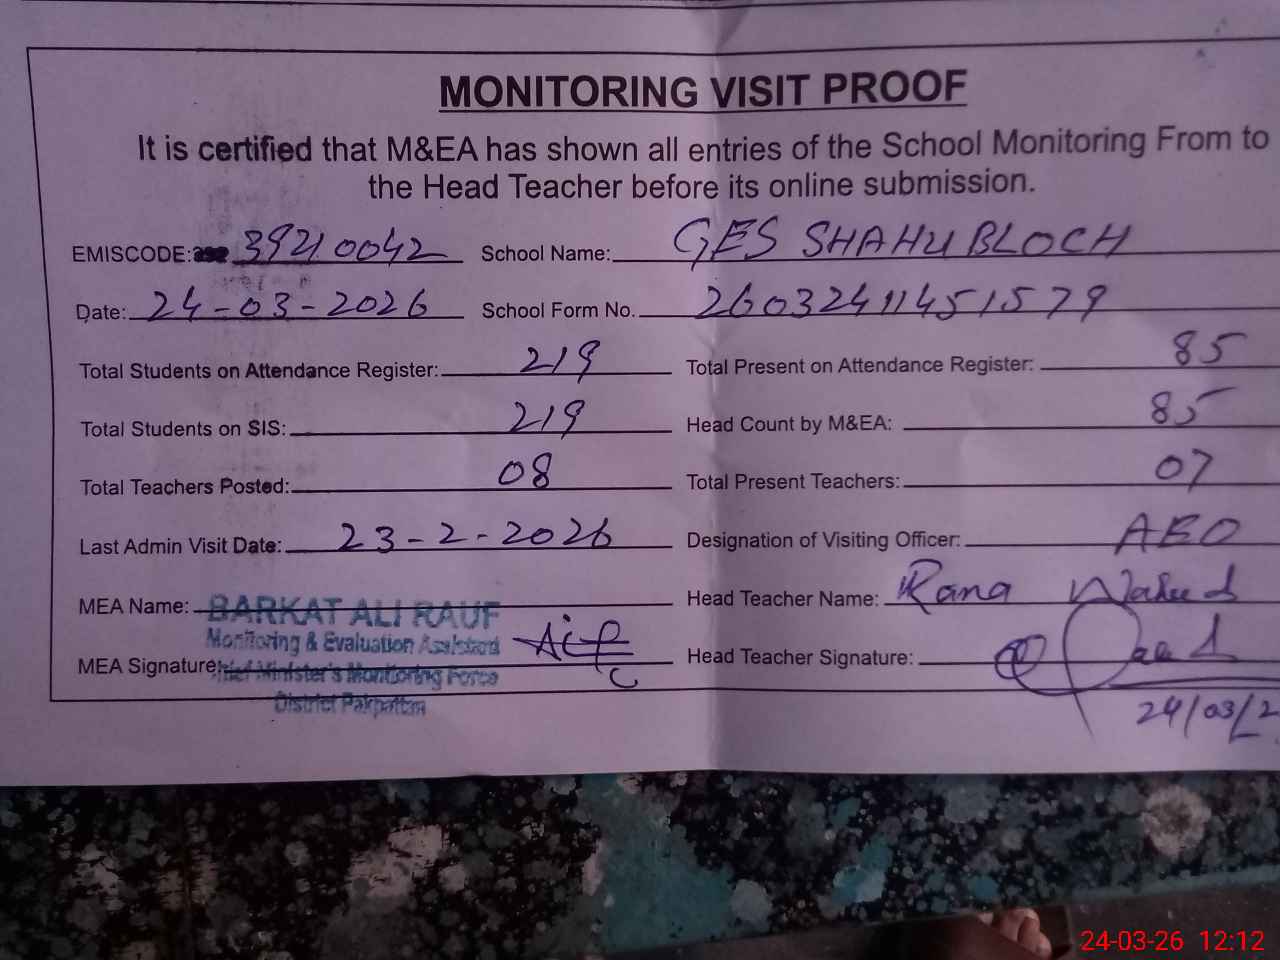 MONITORING VISIT PROOF
It is certified that M&EA has shown all entries of the School Monitoring From to
the Head Teacher before its online submission.
EMISCODE: 39210042 School Name: GES SHAHU BLOCH
Date: 24-03-2026 School Form No. 26032411451579
Total Students on Attendance Register: 219 Total Present on Attendance Register: 85
Total Students on SIS: 219 Head Count by M&EA: 85
Total Teachers Posted: 08 Total Present Teachers: 07
Last Admin Visit Date: 23-2-2026 Designation of Visiting Officer: AEO
MEA Name: BARKAT ALI RAUF Head Teacher Name: Rana Waheed
Monitoring & Evaluation Assistant
MEA Signature: Chief Minister's Monitoring Force Head Teacher Signature:
District Pakpattan
24/03/2
24-03-26 12:12